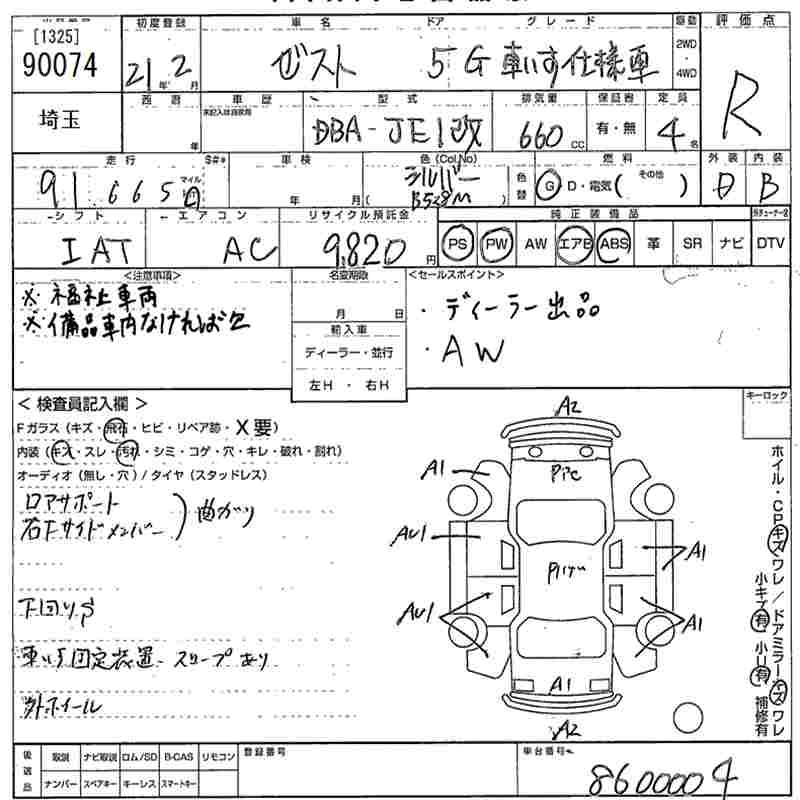 [1325]
90074
初度登録 車名 ドア グレード 駆動 評価点
21年2月 ゼスト 5 G 車いす仕様車 2WD・4WD R
埼玉
西暦 車歴 型式 排気量 保証書 定員
年 DBA-JE1改 660cc 有・無 4名
走行 S#* 車検 色(Col,No) 燃料 外装 内装
91,665 マイル 年 月 シルバー 色替 G D・電気( その他 ) D B
B528M
シフト エアコン リサイクル預託金 純正装備品
IAT AC 9,820円 PS PW AW エアB ABS 革 SR ナビ DTV
<注意事項> 名変期限 <セールスポイント>
※ 福祉車両
※ 備品車内なければ欠
月 日
・ディーラー出品
・AW
輸入車
ディーラー・並行
左H ・ 右H
< 検査員記入欄 >
キーロック
Fガラス (キズ・飛石・ヒビ・リペア跡・X要)
内装 (キズ・スレ・汚れ・シミ・コゲ・穴・キレ・破れ・割れ)
オーディオ (無し・穴) / タイヤ (スタッドレス)
ロアサポート
右Fサイドメンバー
曲がり
下回りS
車いす固定装置・スロープあり
外ホイール
A2
PPC
A1
AU1
A1
AU1
A1
A1
A2
ホイル・CPキズワレ / ドアミラーキズワレ
小キズ有 小U有 補修有
後送品 取説 ナビ取説 ロム/SD B-CAS リモコン 登録番号 車台番号
ナンバー スペアキー キーレス スマートキー 8600004